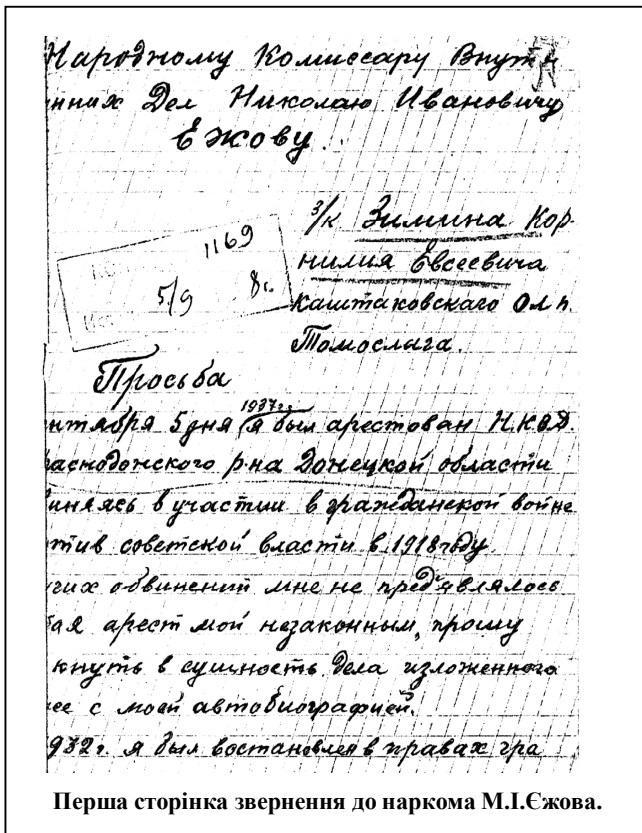 Народному Комиссару Внутр
нних Дел Николаю Ивановичу
Ежову.
з/к Зимина Кор
нилия Евсеевича
каштаковскаго Олп.
Томослыга.
1169
5/9 8г.
Просьба
1937г.
нтября 5 дня я был арестован Н.К.В.Д.
раснодонского р-на Донецкой области
иняясь в участии в гражданской войне
отив советской власти в 1918 году.
гих обвинений мне не пред'являлось
тая арест мой незаконным, прошу
кнуть в сущность дела изложенного
ее с моей автобиографией.
932г. я был востановлен в правах гра
Перша сторінка звернення до наркома М.І.Єжова.